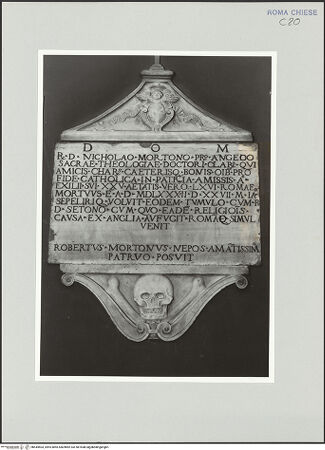 ROMA CHIESE
C20
D O M
R · D · NICHOLAO · MORTONO · PRō · ANGLO
SACRAE · THEOLOGIAE · DOCTORI · CLARō · QVI
AMICIS · CHARIS · CAETERISQ · BONIS · OIB · PRO
FIDE · CATHOLICA · IN · PATRIA · AMISSIS · A
EXILII · SVI · XXV · AETATIS · VERO · LXVI · ROMAE
MORTVVS · E · A · D · MDLXXXII · D · XXVII ·
SEPELIRIQ · VOLVIT · EODEM · TVMVLO · CVM · R
D · SETONO · CVM · QVO · EADE · RELIGIOIS
CAVSA · EX · ANGLIA · AVFVGIT · ROMAQ · SIMVL
VENIT
ROBERTVS · MORTONVS · NEPOS · AMATISSIM
PATRVO · POSVIT